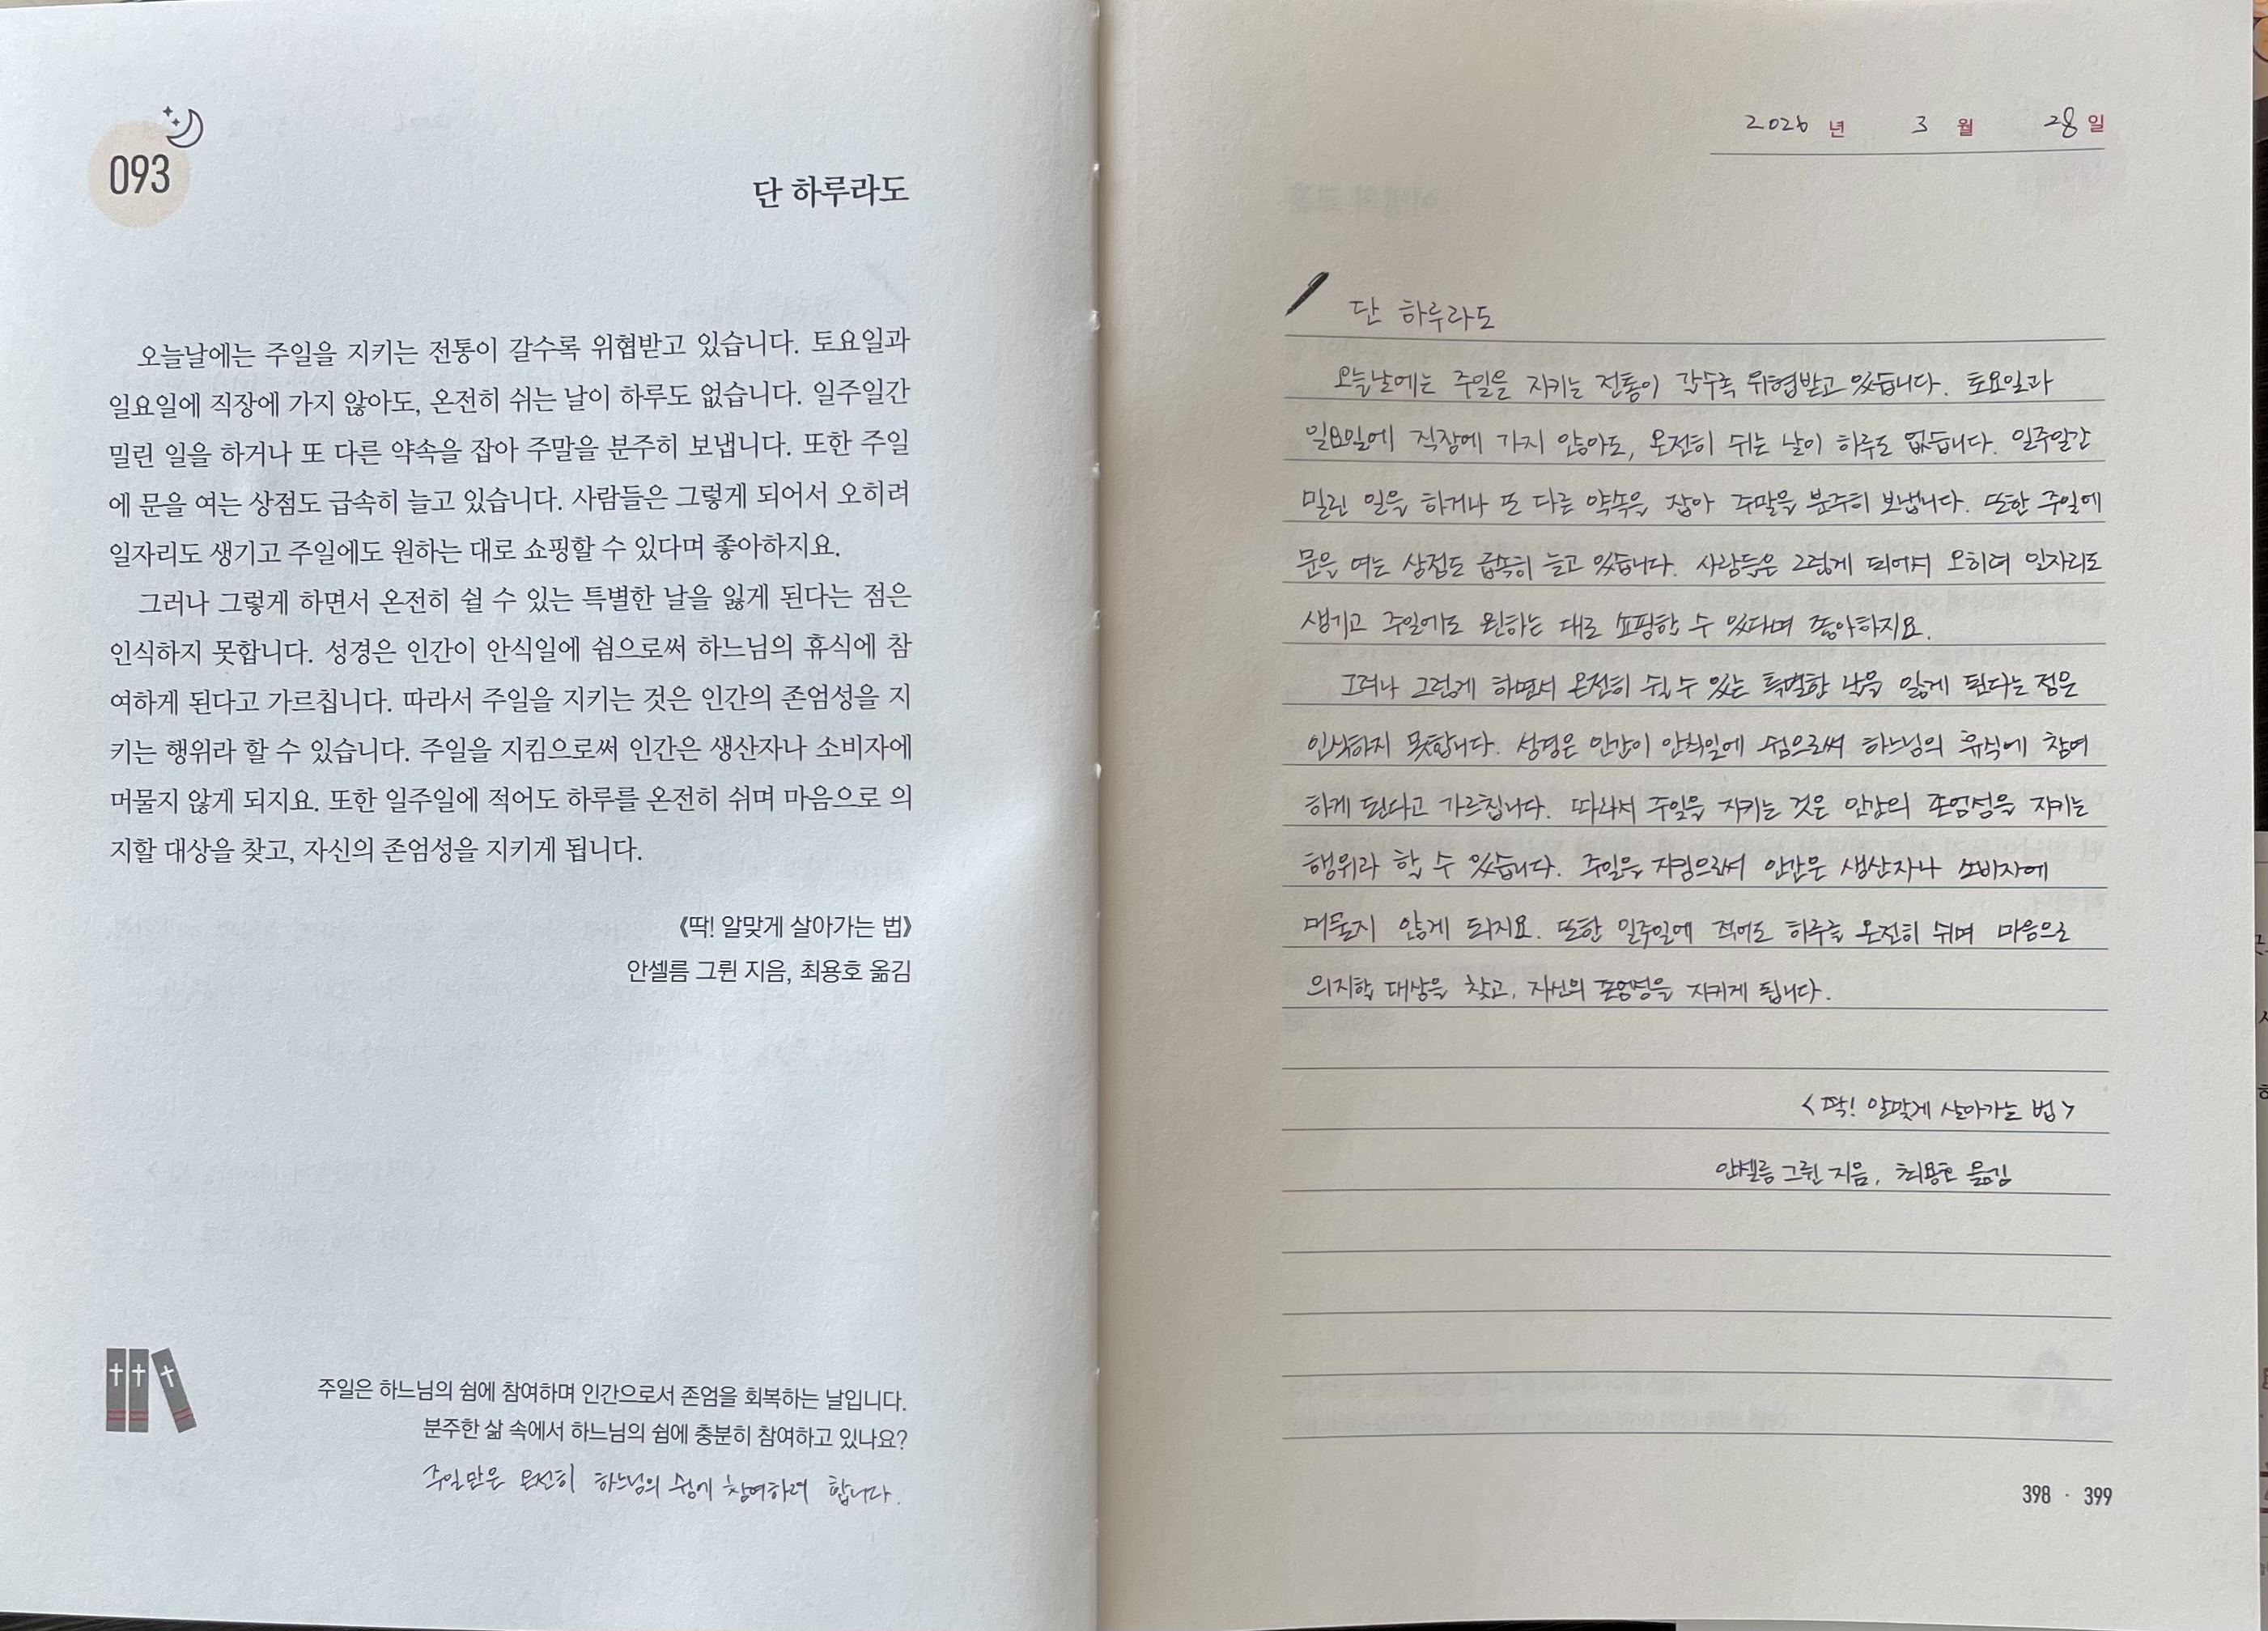 093
단 하루라도
오늘날에는 주일을 지키는 전통이 갈수록 위협받고 있습니다. 토요일과
일요일에 직장에 가지 않아도, 온전히 쉬는 날이 하루도 없습니다. 일주일간
밀린 일을 하거나 또 다른 약속을 잡아 주말을 분주히 보냅니다. 또한 주일
에 문을 여는 상점도 급속히 늘고 있습니다. 사람들은 그렇게 되어서 오히려
일자리도 생기고 주일에도 원하는 대로 쇼핑할 수 있다며 좋아하지요.
그러나 그렇게 하면서 온전히 쉴 수 있는 특별한 날을 잃게 된다는 점은
인식하지 못합니다. 성경은 인간이 안식일에 쉼으로써 하느님의 휴식에 참
여하게 된다고 가르칩니다. 따라서 주일을 지키는 것은 인간의 존엄성을 지
키는 행위라 할 수 있습니다. 주일을 지킴으로써 인간은 생산자나 소비자에
머물지 않게 되지요. 또한 일주일에 적어도 하루를 온전히 쉬며 마음으로 의
지할 대상을 찾고, 자신의 존엄성을 지키게 됩니다.
《딱! 알맞게 살아가는 법》
안셀름 그륀 지음, 최용호 옮김
주일은 하느님의 쉼에 참여하며 인간으로서 존엄을 회복하는 날입니다.
분주한 삶 속에서 하느님의 쉼에 충분히 참여하고 있나요?
주일만은 온전히 하느님의 쉼에 참여하려 합니다.
2026 년 3 월 28 일
단 하루라도
오늘날에는 주일을 지키는 전통이 갈수록 위협받고 있습니다. 토요일과
일요일에 직장에 가지 않아도, 온전히 쉬는 날이 하루도 없습니다. 일주일간
밀린 일을 하거나 또 다른 약속을 잡아 주말을 분주히 보냅니다. 또한 주일에
문을 여는 상점도 급속히 늘고 있습니다. 사람들은 그렇게 되어서 오히려 일자리도
생기고 주일에도 원하는 대로 쇼핑할 수 있다며 좋아하지요.
그러나 그렇게 하면서 온전히 쉴 수 있는 특별한 날을 잃게 된다는 점은
인식하지 못합니다. 성경은 인간이 안식일에 쉼으로써 하느님의 휴식에 참여
하게 된다고 가르칩니다. 따라서 주일을 지키는 것은 인간의 존엄성을 지키는
행위라 할 수 있습니다. 주일을 지킴으로써 인간은 생산자나 소비자에
머물지 않게 되지요. 또한 일주일에 적어도 하루를 온전히 쉬며 마음으로
의지할 대상을 찾고, 자신의 존엄성을 지키게 됩니다.
<딱! 알맞게 살아가는 법>
안셀름 그륀 지음, 최용호 옮김
398 · 399